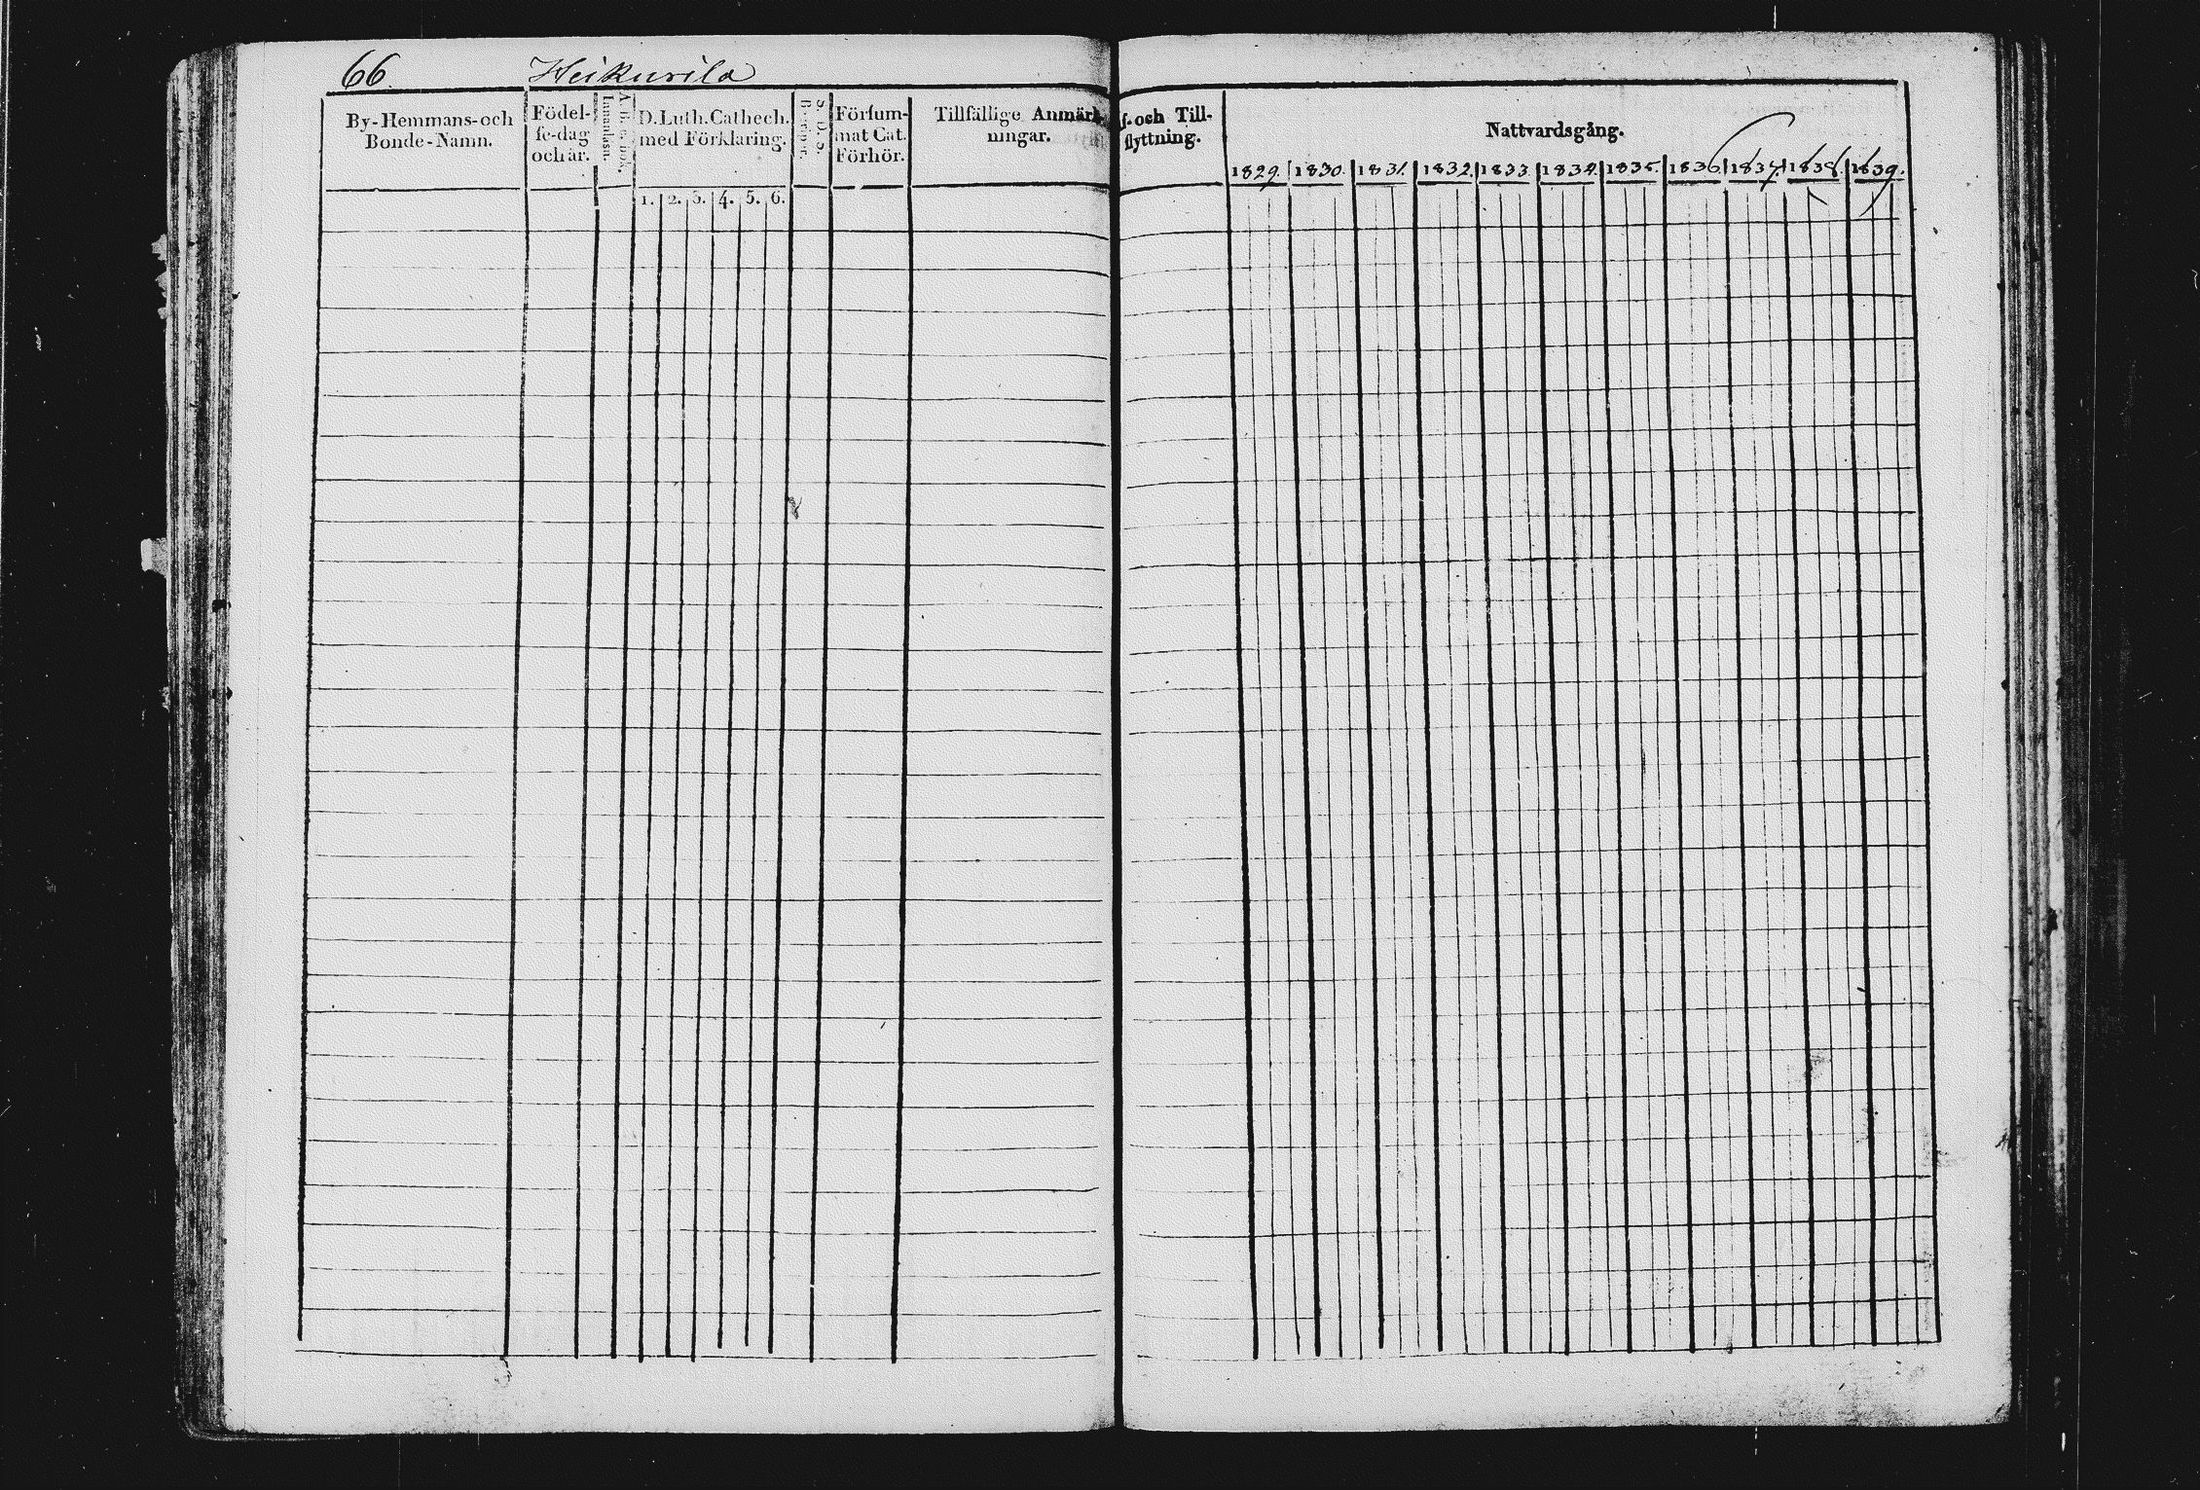 66. Heikurila
By-Hemmans-och
Bonde-Namn.
Födel-
se-dag
och år.
Innanläsn.
D. Luth. Cathech.
med Förklaring.
1. 2. 3. 4. 5. 6.
Försum-
mat Cat.
Förhör.
Tillfällige Anmärk-
ningar.
f- och Till-
flyttning.
Nattvardsgång.
1829. 1830. 1831. 1832. 1833. 1834. 1835. 1836. 1837. 1838. 1839.